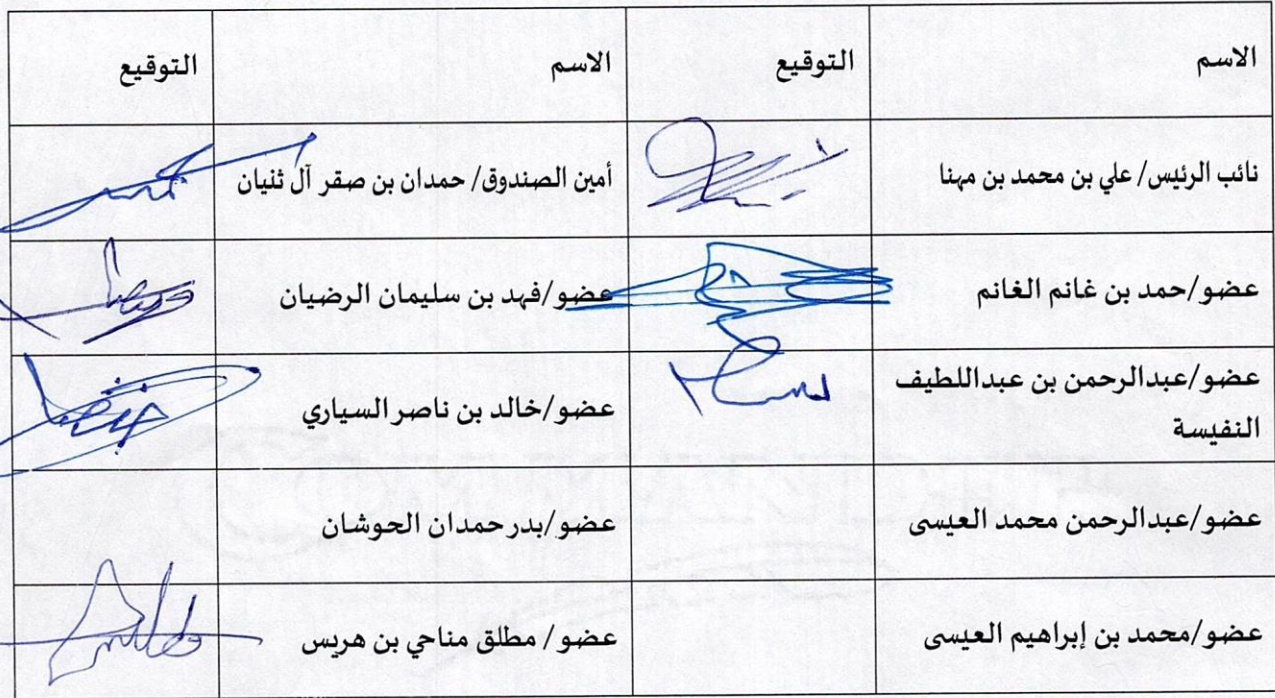 الاسم التوقيع الاسم التوقيع
نائب الرئيس/ علي بن محمد بن مهنا أمين الصندوق/ حمدان بن صقر آل ثنيان
عضو/حمد بن غانم الغانم عضو/فهد بن سليمان الرضيان
عضو/عبدالرحمن بن عبداللطيف
النفيسة
عضو/خالد بن ناصر السياري
عضو/عبدالرحمن محمد العيسى عضو/بدر حمدان الحوشان
عضو/محمد بن إبراهيم العيسى عضو/ مطلق مناحي بن هريس